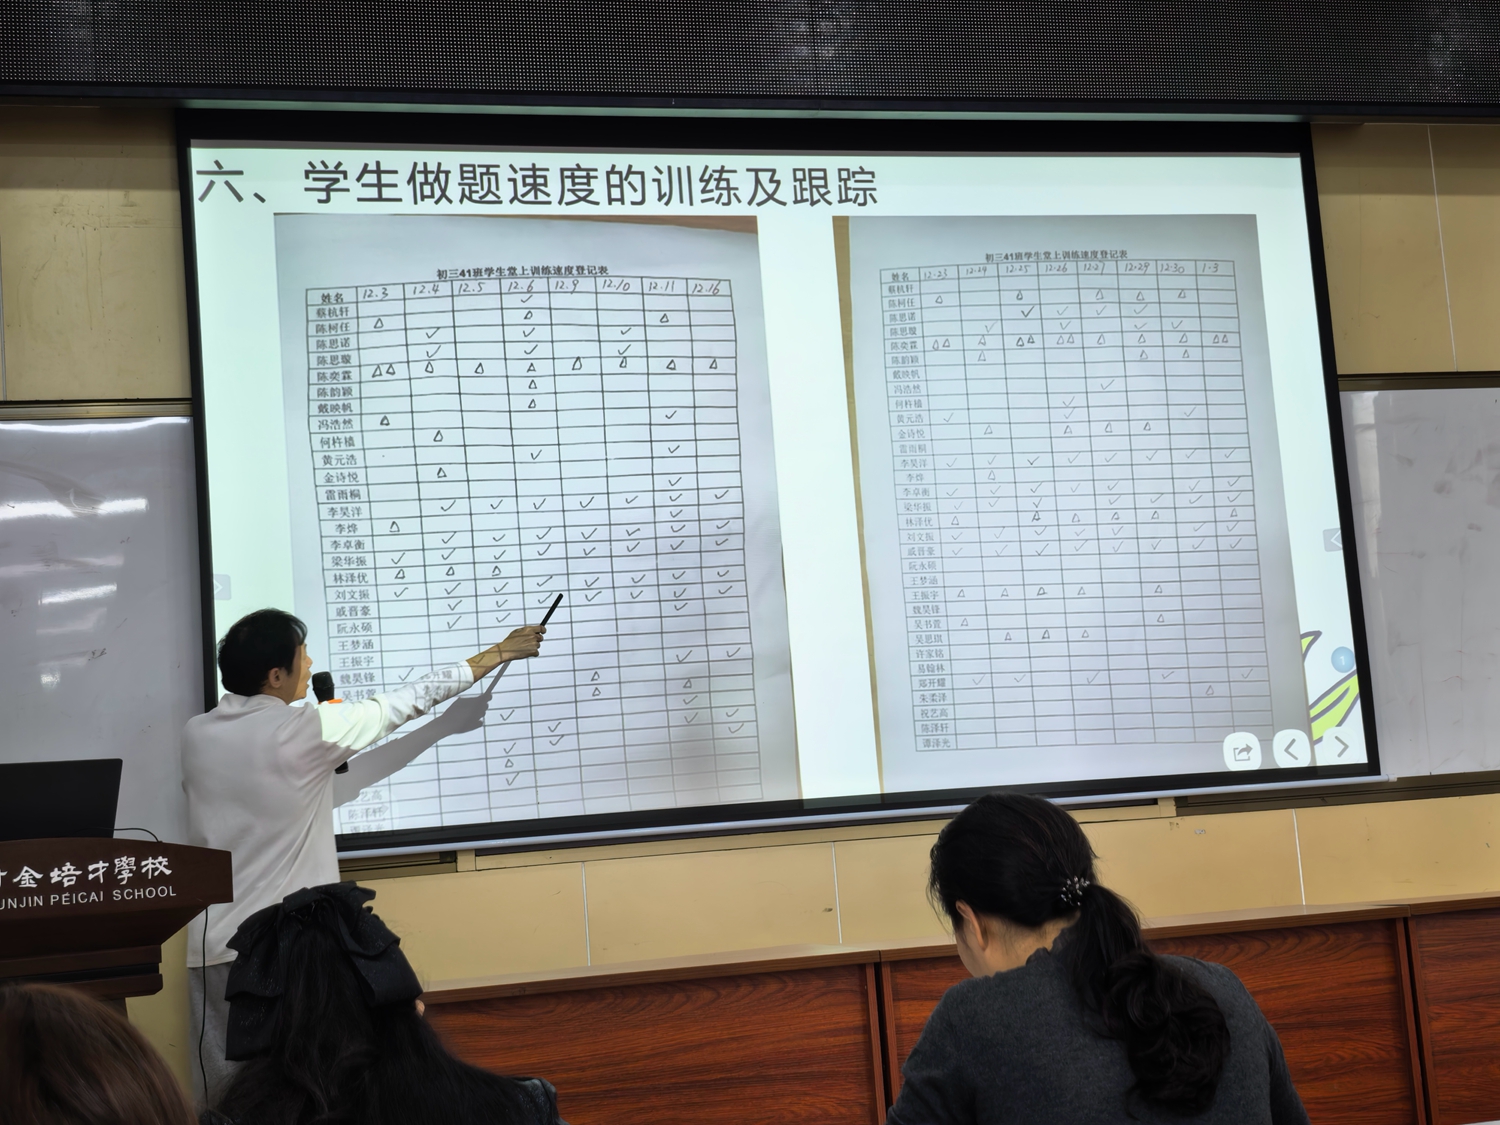 六、学生做题速度的训练及跟踪
初三41班学生堂上训练速度登记表
姓名 12.3 12.4 12.5 12.6 12.9 12.10 12.11 12.16
蔡杭轩 ✓
陈柯任 △ △ △
陈思诺 ✓ ✓ ✓
陈思璇 ✓ ✓ ✓
陈奕霖 △△ △ △ △ △ △ △ △
陈韵颖 △
戴映帆 △
冯浩然 △ ✓
何杵樯 △
黄元浩 ✓ ✓
金诗悦 △
雷雨桐 ✓
李昊洋 ✓ ✓ ✓ ✓ ✓ ✓ ✓
李烨 △ ✓
李卓衡 ✓ ✓ ✓ ✓ ✓ ✓ ✓
梁华振 ✓ ✓ ✓ ✓ ✓ ✓ ✓ ✓
林泽优 △ △ △
刘文振 ✓ ✓ ✓ ✓ ✓ ✓ ✓ ✓
戚晋豪 ✓ ✓ ✓ ✓ ✓ ✓ ✓
阮永硕 ✓ ✓ ✓
王梦涵
王振宇
魏昊锋 ✓
吴书萱
初三41班学生堂上训练速度登记表
姓名 12.23 12.24 12.25 12.26 12.27 12.29 12.30 1.3
蔡杭轩
陈柯任 △ △ △ △ △
陈思诺 ✓ ✓ ✓ ✓
陈思璇 ✓ ✓ ✓ ✓
陈奕霖 △△ △ △△ △△ △ △ △ △△
陈韵颖 △ △ △
戴映帆
冯浩然 ✓
何杵樯 ✓
黄元浩 ✓ ✓ ✓
金诗悦 △ △ △ △
雷雨桐
李昊洋 ✓ ✓ ✓ ✓ ✓ ✓ ✓ ✓
李烨 △
李卓衡 ✓ ✓ ✓ ✓ ✓ ✓ ✓
梁华振 ✓ ✓ ✓ ✓ ✓ ✓ ✓
林泽优 △ △ △ △ △ △
刘文振 ✓ ✓ ✓ ✓ ✓ ✓ ✓
戚晋豪 ✓ ✓ ✓ ✓ ✓ ✓ ✓ ✓
阮永硕
王梦涵
王振宇 △ △ △ △ △
魏昊锋
吴书萱 △ △
吴思琪 △ △ △
许家铭
易翰林
郑开耀 ✓ ✓ ✓ ✓ ✓
朱柔泽 △
祝艺高
陈泽轩
谭泽光
1
金培才學校
UNJIN PEICAI SCHOOL